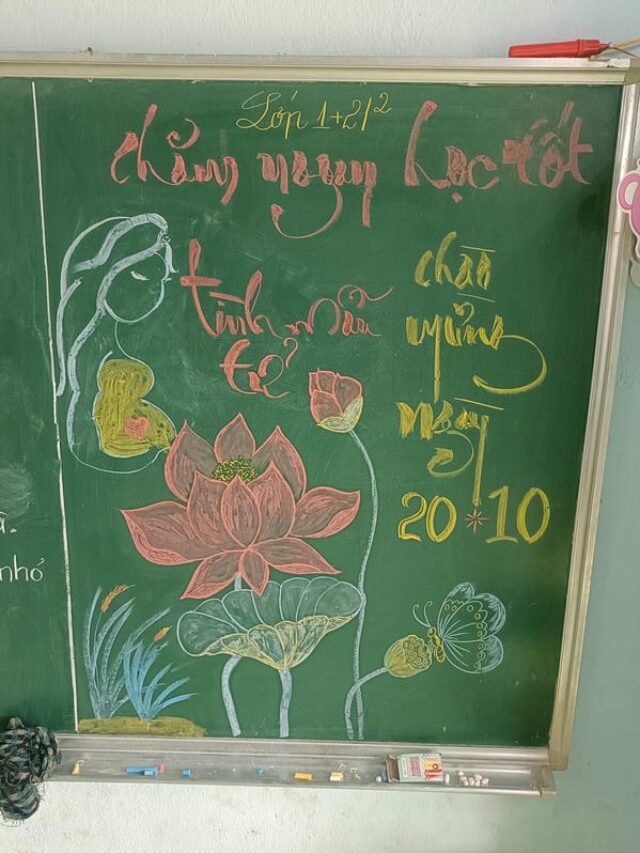 Lớp 1+2/2
chăm ngoan học tốt
tình mẫu
tử
chào
mừng
ngày
20 * 10
nhỏ